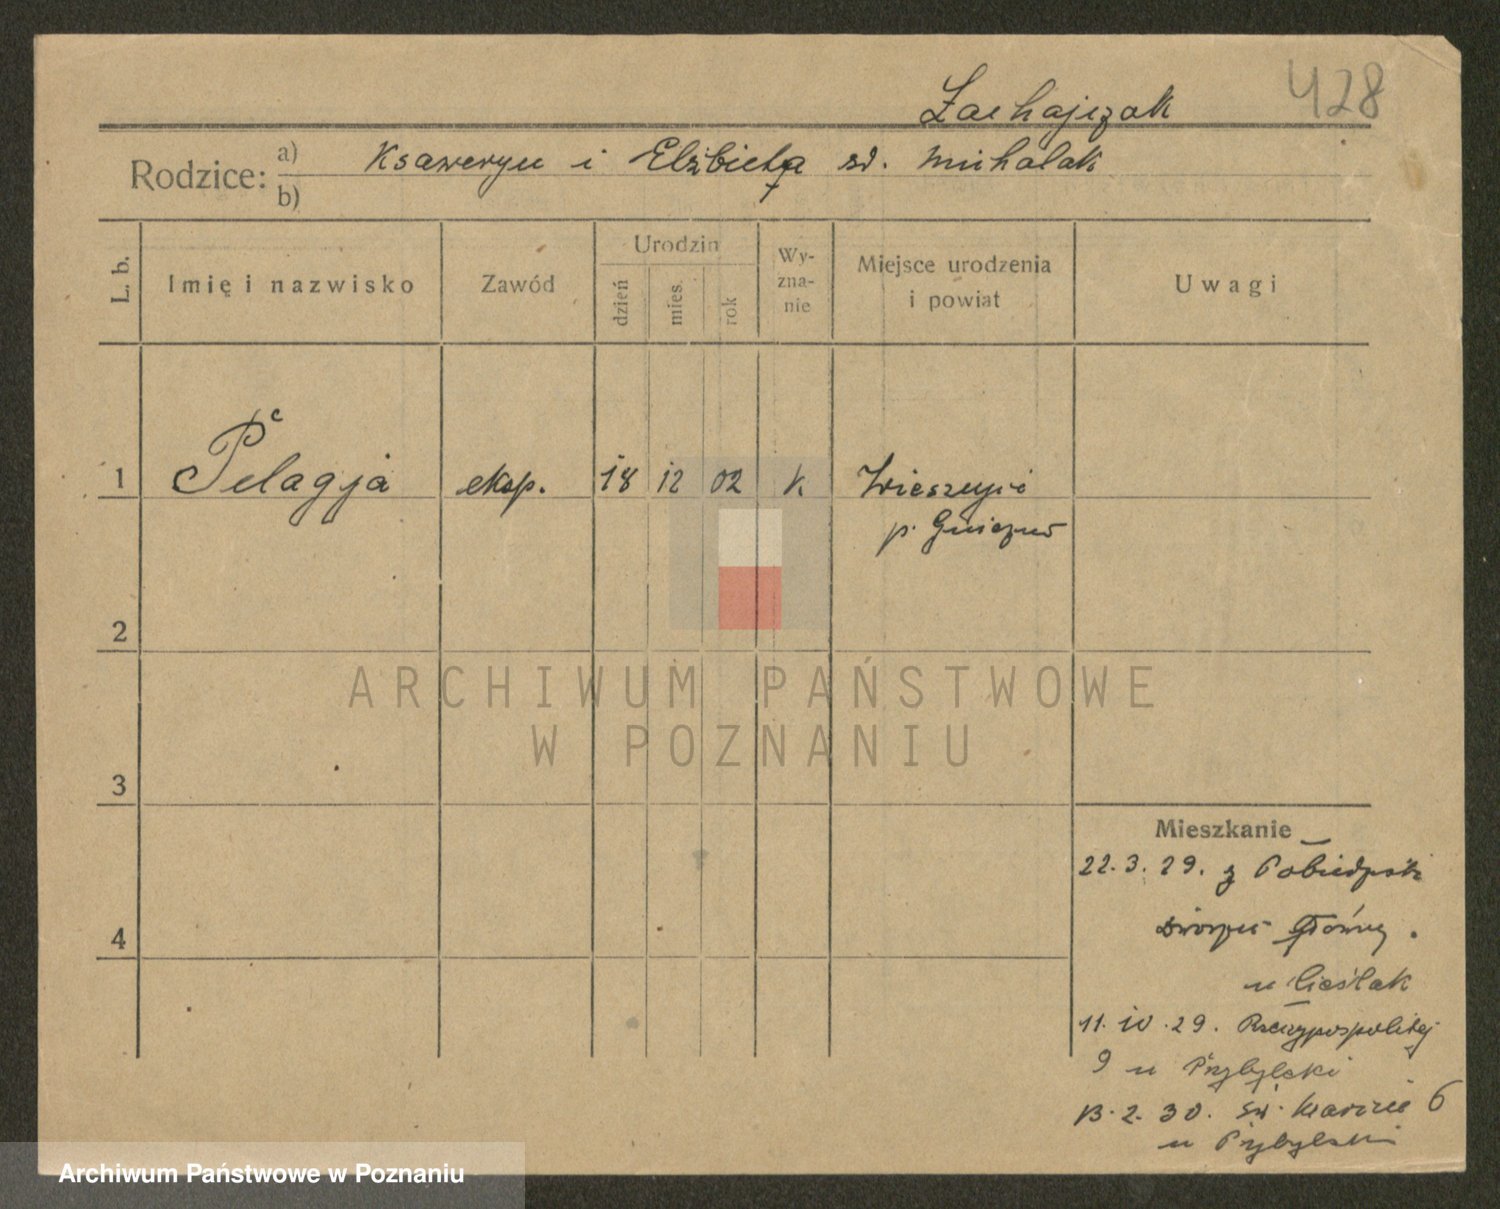 Zachajczak 428
Rodzice: a) Ksawerym i Elżbieta zd. Michalak
b)
L. b. Imię i nazwisko Zawód Urodzin dzień mies. rok Wy-zna-nie Miejsce urodzenia i powiat Uwagi
1 Pelagja eksp. 18 12 02 k
p. Gniezno
2
ARCHIWUM PAŃSTWOWE
W POZNANIU
3
Mieszkanie
22.3.29. z
4 Dworzec Główny.
u Cieślak
11.10.29. Rzeczypospolitej
9 u Przybylski
13.2.30. św. Marcin 6
u Przybylski
Archiwum Państwowe w Poznaniu